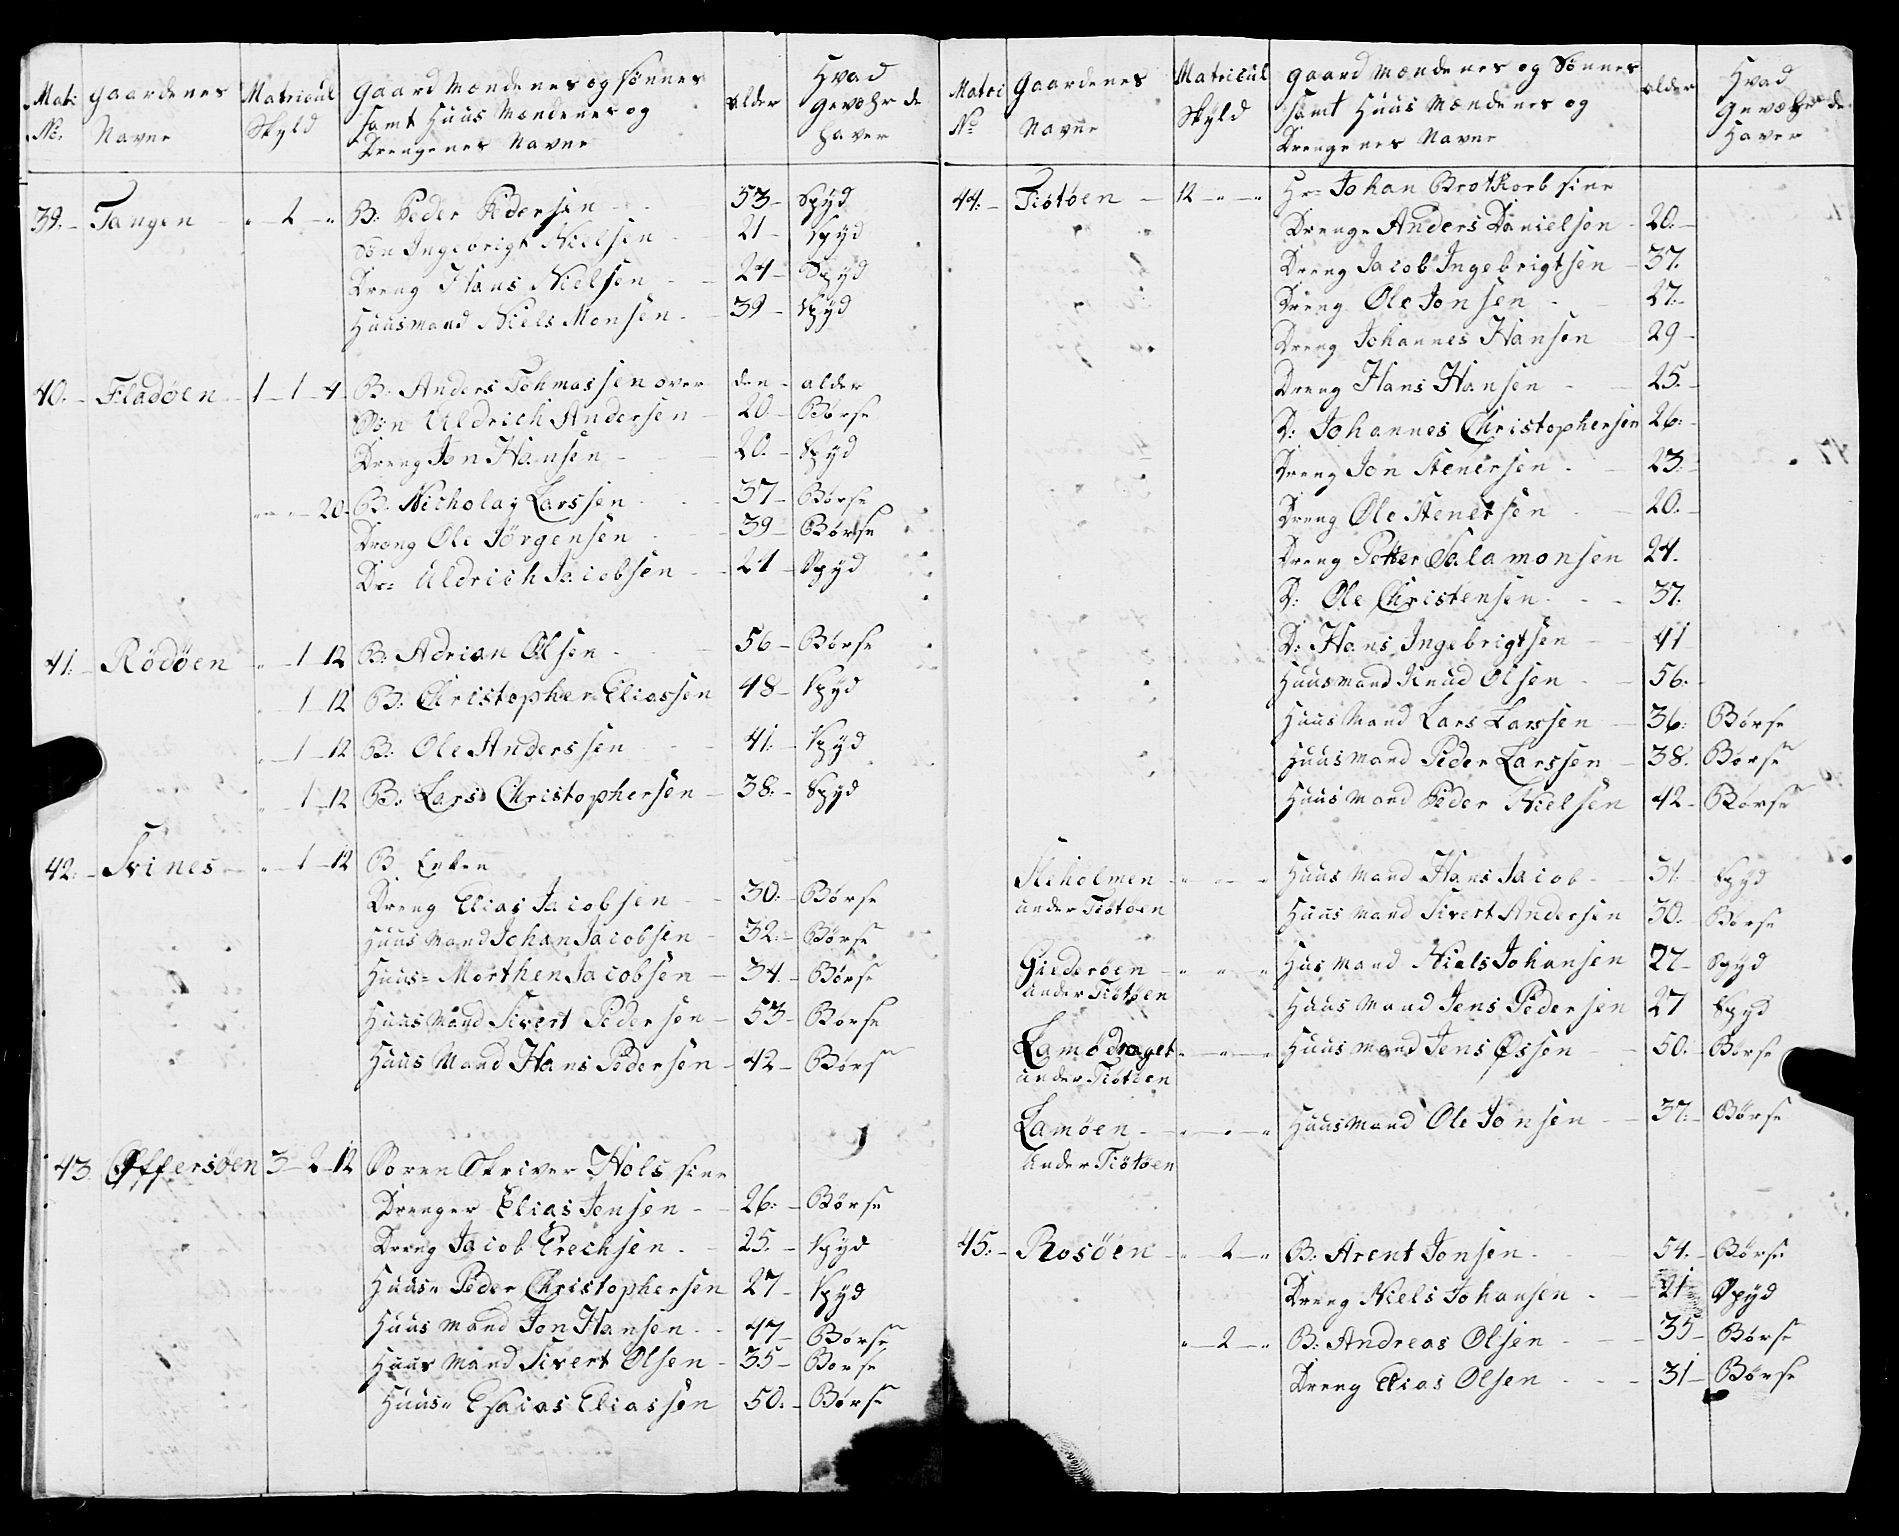 Matr: No. Gaardenes Navne Matricul Skyld Gaard Mændenes og Sønnes samt Huus Mændenes og Drengenes Navne alder Hvad Gevæhr de haver
39. Tangen " 2 " B: Peder Pedersen 53 Spÿd
Søn Ingeorigt Nielsen 21 Spÿd
Dreng Hans Nielsen 24 Spÿd
Huusmand Niels Monsen 39 Spÿd
40. Fladøen 1 1 4 B: Anders Tohmassen over den alder
Søn Uldrich Andersen 20 Børse
Dreng Jon Hansen 20. Spÿd
" " 20. B: Nicholaÿ Larssen 37 Børse
Dreng Ole Jørgensen 39 Børse
Dr= Uldrich Jacobsen 21 Spÿd
41. Rødøen " 1 12 B: Adrian Olsen 56 Børse
" 1 12 B: Christopher Eliassen 48 Spÿd
" 1 12 B: Ole Anderssen 41. Spÿd
" 1 12 B: Lars Christophersen 38. Spÿd
42. Svines " 1 12 B. Enken
Dreng Elias Jacobsen 30. Børse
Huus Mand Johan Jacobsen 32. Børse
Huus= Morthen Jacobsen 34. Børse
Huus Mand Sivert Pedersen 53 Børse
Huus Mand Hans Pedersen 42 Børse
43 Offersøen 3 2 12 Søren Skriver Hols sine
Drenger Elias Jensen 26. Børse
Dreng Jacob Erechsen 25. Spÿd
Huus" Peder Christophersen 27 Spÿd
Huus mand Jon Hansen 47 Børse
Huus Mand Sivert Olsen 35 Børse
Huus" Esaias Eliassen 50. Børse
Matri No Gaardenes Navne Matricul Skÿld Gaard Mændenes og Sønnes samt Huus Mændenes og Drengenes Navne alder Hvad Gevæhr de Haver
44. Tiøtøen 12 " " Hr= Johan Brotkorb sine
Drenge Anders Danielsen 20.
Dreng Jacob Ingebrigtsen 37.
Dreng Ole Jonsen 27.
Dreng Johannes Hansen 29
Dreng Hans Hansen 25.
D: Johannes Christophersen 26:
Dreng Jon Stenersen 23.
Dreng Ole Stenersen 20.
Dreng Petter Salamonsen 24.
D: Ole Christensen 37.
D: Hans Ingebrigtsen 41
Huusmand Knud Olsen 56.
Huus Mand Lars Larssen 36: Børse
Huusmand Peder Larssen 38. Børse
Huus mand Peder Nielsen 42 Børse
Steholmen " " " Huus Mand Hans Jacob 31. Spÿd
under Tiøtøen Huus Mand Sivert Andersen 30. Børse
Giederøen " " " Huus mand Niels Johansen 27 Spÿd
under Tiøtøen Huus Mand Jens Pedersen 27 Spÿd
Lamødraget " " " Huus mand Jens Ossen 50. Børse
under Tiøtøen
Lamøen " " " Huus Mand Ole Jonsen 37. Børse
under Tiøtøen
45. Rosøen " 2 " B: Arent Jonsen 54. Børse
Dreng Niels Johansen 21 Spÿd
" 2 " B: Andreas Olsen 35 Børse
Dreng Elias Olsen 31 Børse